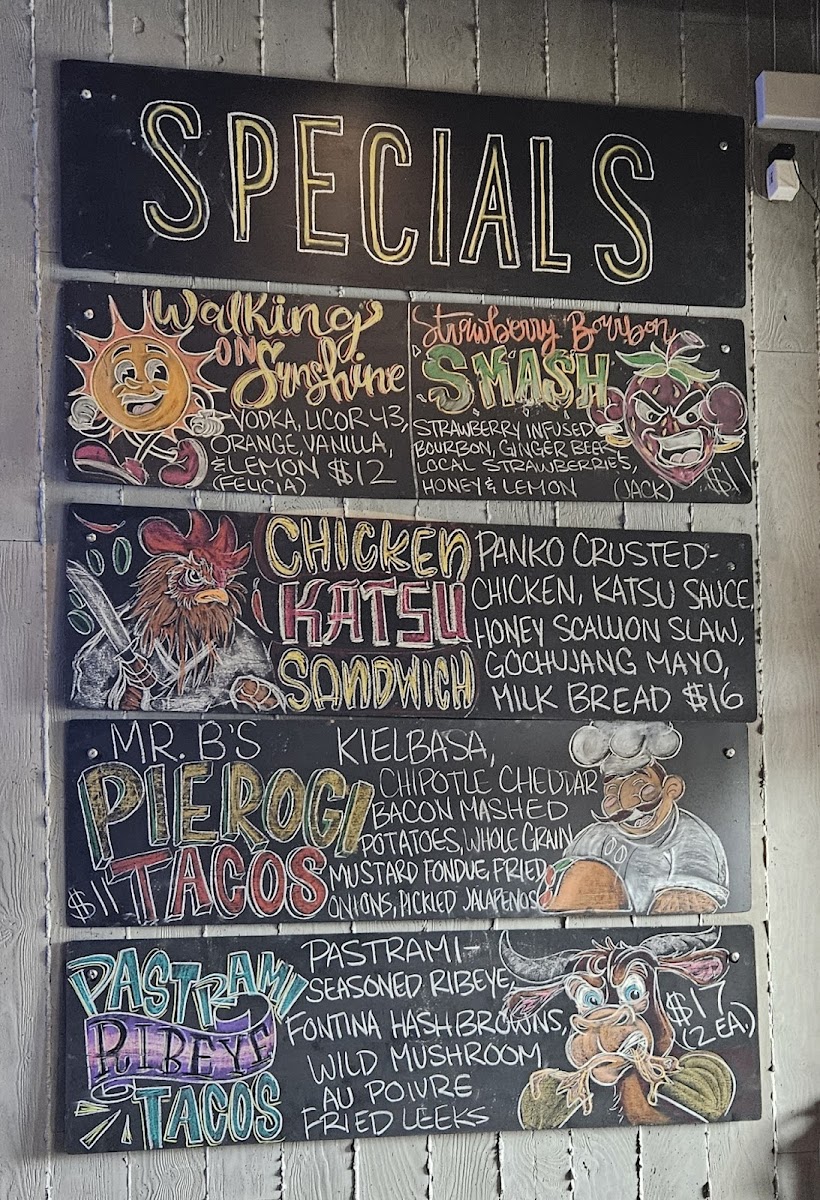 SPECIALS
Walking
ON
Sunshine
VODKA, LICOR 43,
ORANGE, VANILLA,
& LEMON $12
(FELICIA)
Strawberry Borbon
SMASH
STRAWBERRY INFUSED
BOURBON, GINGER BEER,
LOCAL STRAWBERRIES,
HONEY & LEMON (JACK) $11
CHICKEN
KATSU
SANDWICH
PANKO CRUSTED-
CHICKEN, KATSU SAUCE,
HONEY SCALLION SLAW,
GOCHUJANG MAYO,
MILK BREAD $16
MR. B'S
PIEROGI
TACOS
$11
KIELBASA,
CHIPOTLE CHEDDAR
BACON MASHED
POTATOES, WHOLE GRAIN
MUSTARD FONDUE, FRIED
ONIONS, PICKLED JALAPENOS
PASTRAMI
RIBEYE
TACOS
PASTRAMI-
SEASONED RIBEYE,
FONTINA HASHBROWNS,
WILD MUSHROOM
AU POIVRE
FRIED LEEKS
$17
(2 EA.)